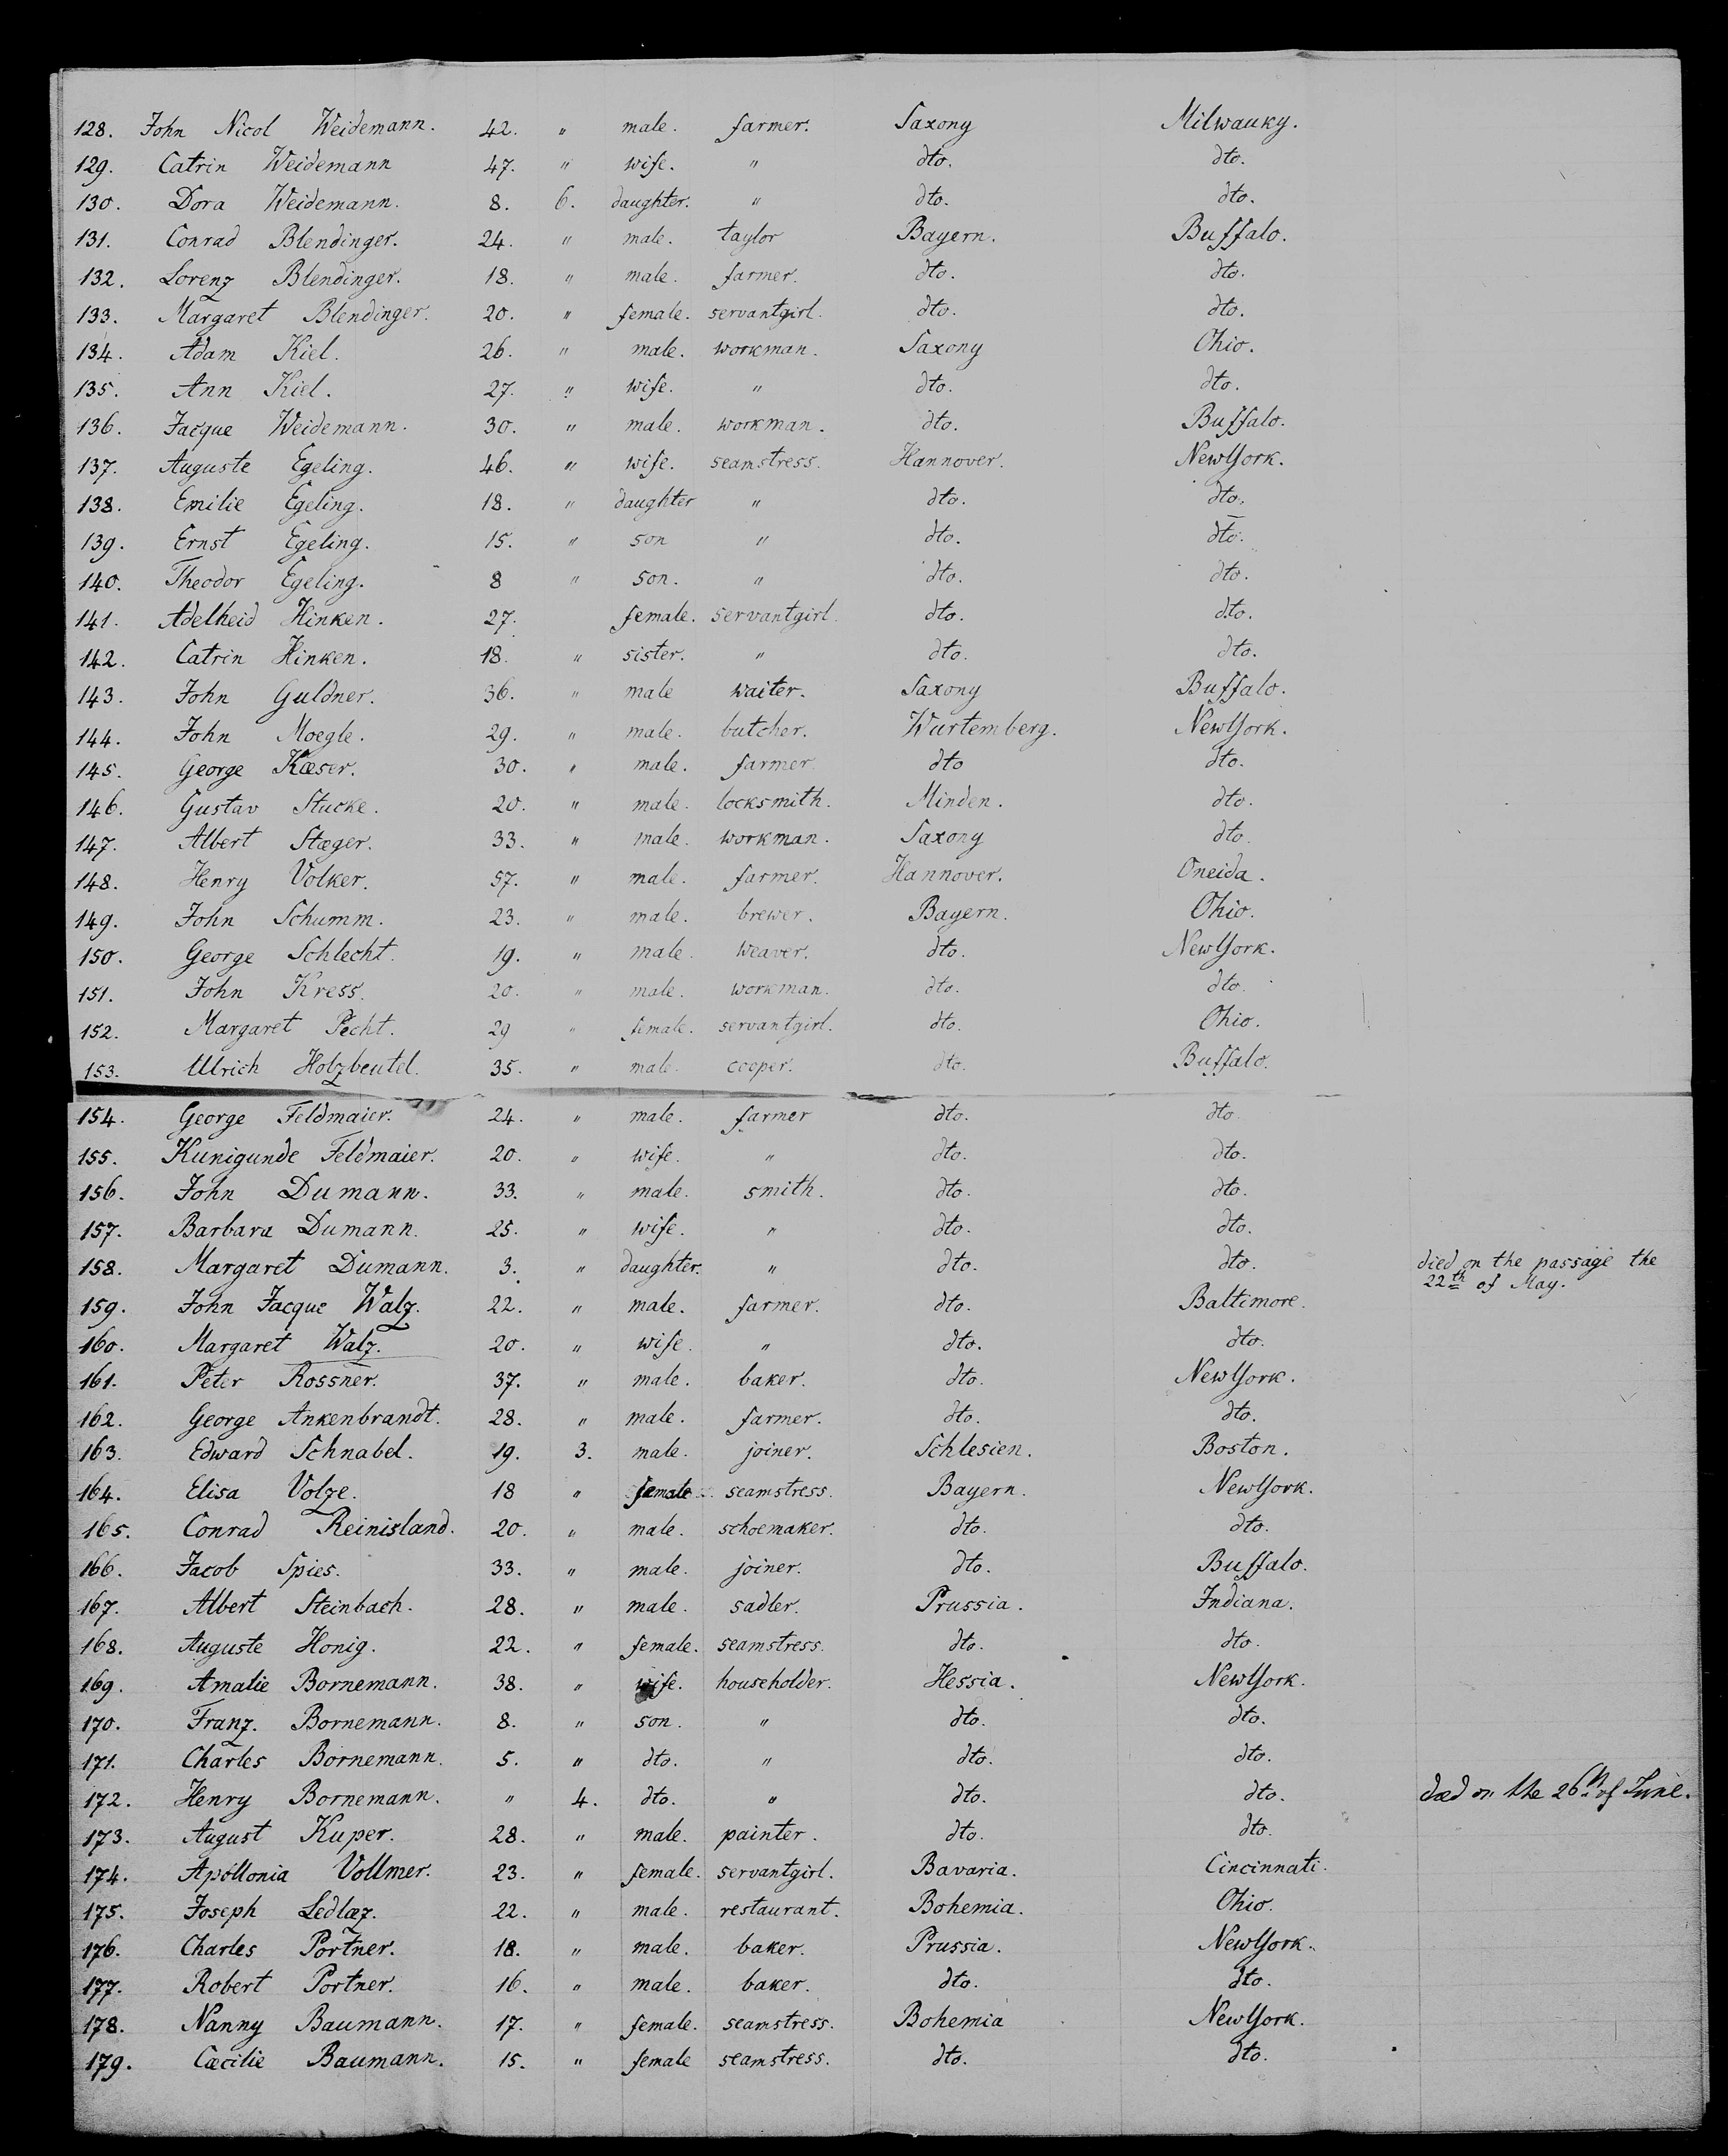 128. John Nicol Weidemann. 42. " male. farmer. Saxony Milwauky.
129. Catrin Weidemann 47. " wife. " dto. dto.
130. Dora Weidemann. 8. 6. daughter. " dto. dto.
131. Conrad Blendinger. 24. " male. taylor Bayern. Buffalo.
132. Lorenz Blendinger. 18. " male. farmer. dto. dto.
133. Margaret Blendinger. 20. " female. servantgirl. dto. dto.
134. Adam Kiel. 26. " male. workman. Saxony Ohio.
135. Ann Kiel. 27. " wife. " dto. dto.
136. Jacque Weidemann. 30. " male. workman. dto. Buffalo.
137. Auguste Egeling. 46. " wife. seamstress. Hannover. NewYork.
138. Emilie Egeling. 18. " daughter " dto. dto.
139. Ernst Egeling. 15. " son " dto. dto.
140. Theodor Egeling. 8 " son. " dto. dto.
141. Adelheid Hinken. 27. female. servantgirl. dto. dto.
142. Catrin Hinken. 18. " sister. " dto. dto.
143. John Guldner. 36. " male waiter. Saxony Buffalo.
144. John Moegle. 29. " male. butcher. Wurtemberg. NewYork.
145. George Kæser. 30. " male. farmer dto dto.
146. Gustav Stucke. 20. " male. locksmith. Minden. dto.
147. Albert Stæger. 33. " male. workman. Saxony dto.
148. Henry Volker. 57. " male. farmer. Hannover. Oneida.
149. John Schumm. 23. " male. brewer. Bayern. Ohio.
150. George Schlecht. 19. " male. weaver. dto. NewYork.
151. John Kress. 20. " male. workman. dto. dto.
152. Margaret Pecht. 29 " female. servantgirl. dto. Ohio.
153. Ulrich Holzbeutel. 35. " male. cooper. dto. Buffalo.
154. George Feldmaier. 24. " male. farmer dto. dto.
155. Kunigunde Feldmaier. 20. " wife. " dto. dto.
156. John Dumann. 33. " male. smith. dto. dto.
157. Barbara Dumann. 25. " wife. " dto. dto.
158. Margaret Dumann. 3. " daughter. " dto. dto. died on the passage the
22th of May.
159. John Jacque Walz. 22. " male. farmer. dto. Baltimore.
160. Margaret Walz. 20. " wife. " dto. dto.
161. Peter Rossner. 37. " male. baker. dto. NewYork.
162. George Ankenbrandt. 28. " male. farmer. dto. dto.
163. Edward Schnabel. 19. 3. male. joiner. Schlesien. Boston.
164. Elisa Volze. 18 " female seamstress. Bayern. NewYork.
165. Conrad Reinisland. 20. " male. schoemaker. dto. dto.
166. Jacob Spies. 33. " male. joiner. dto. Buffalo.
167. Albert Steinbach. 28. " male. sadler. Prussia. Indiana.
168. Auguste Honig. 22. " female. seamstress. dto. dto.
169. Amalie Bornemann. 38. " wife. householder. Hessia. NewYork.
170. Franz. Bornemann. 8. " son. " dto. dto.
171. Charles Bornemann. 5. " dto. " dto. dto.
172. Henry Bornemann. " 4. dto. " dto. dto. died on the 26th of June.
173. August Kuper. 28. " male. painter. dto. dto.
174. Apollonia Vollmer. 23. " female. servantgirl. Bavaria. Cincinnati.
175. Joseph Ledlæz. 22. " male. restaurant. Bohemia. Ohio.
176. Charles Portner. 18. " male. baker. Prussia. NewYork.
177. Robert Portner. 16. " male. baker. dto. dto.
178. Nanny Baumann. 17. " female. seamstress. Bohemia NewYork.
179. Cæcilie Baumann. 15. " female seamstress. dto. dto.